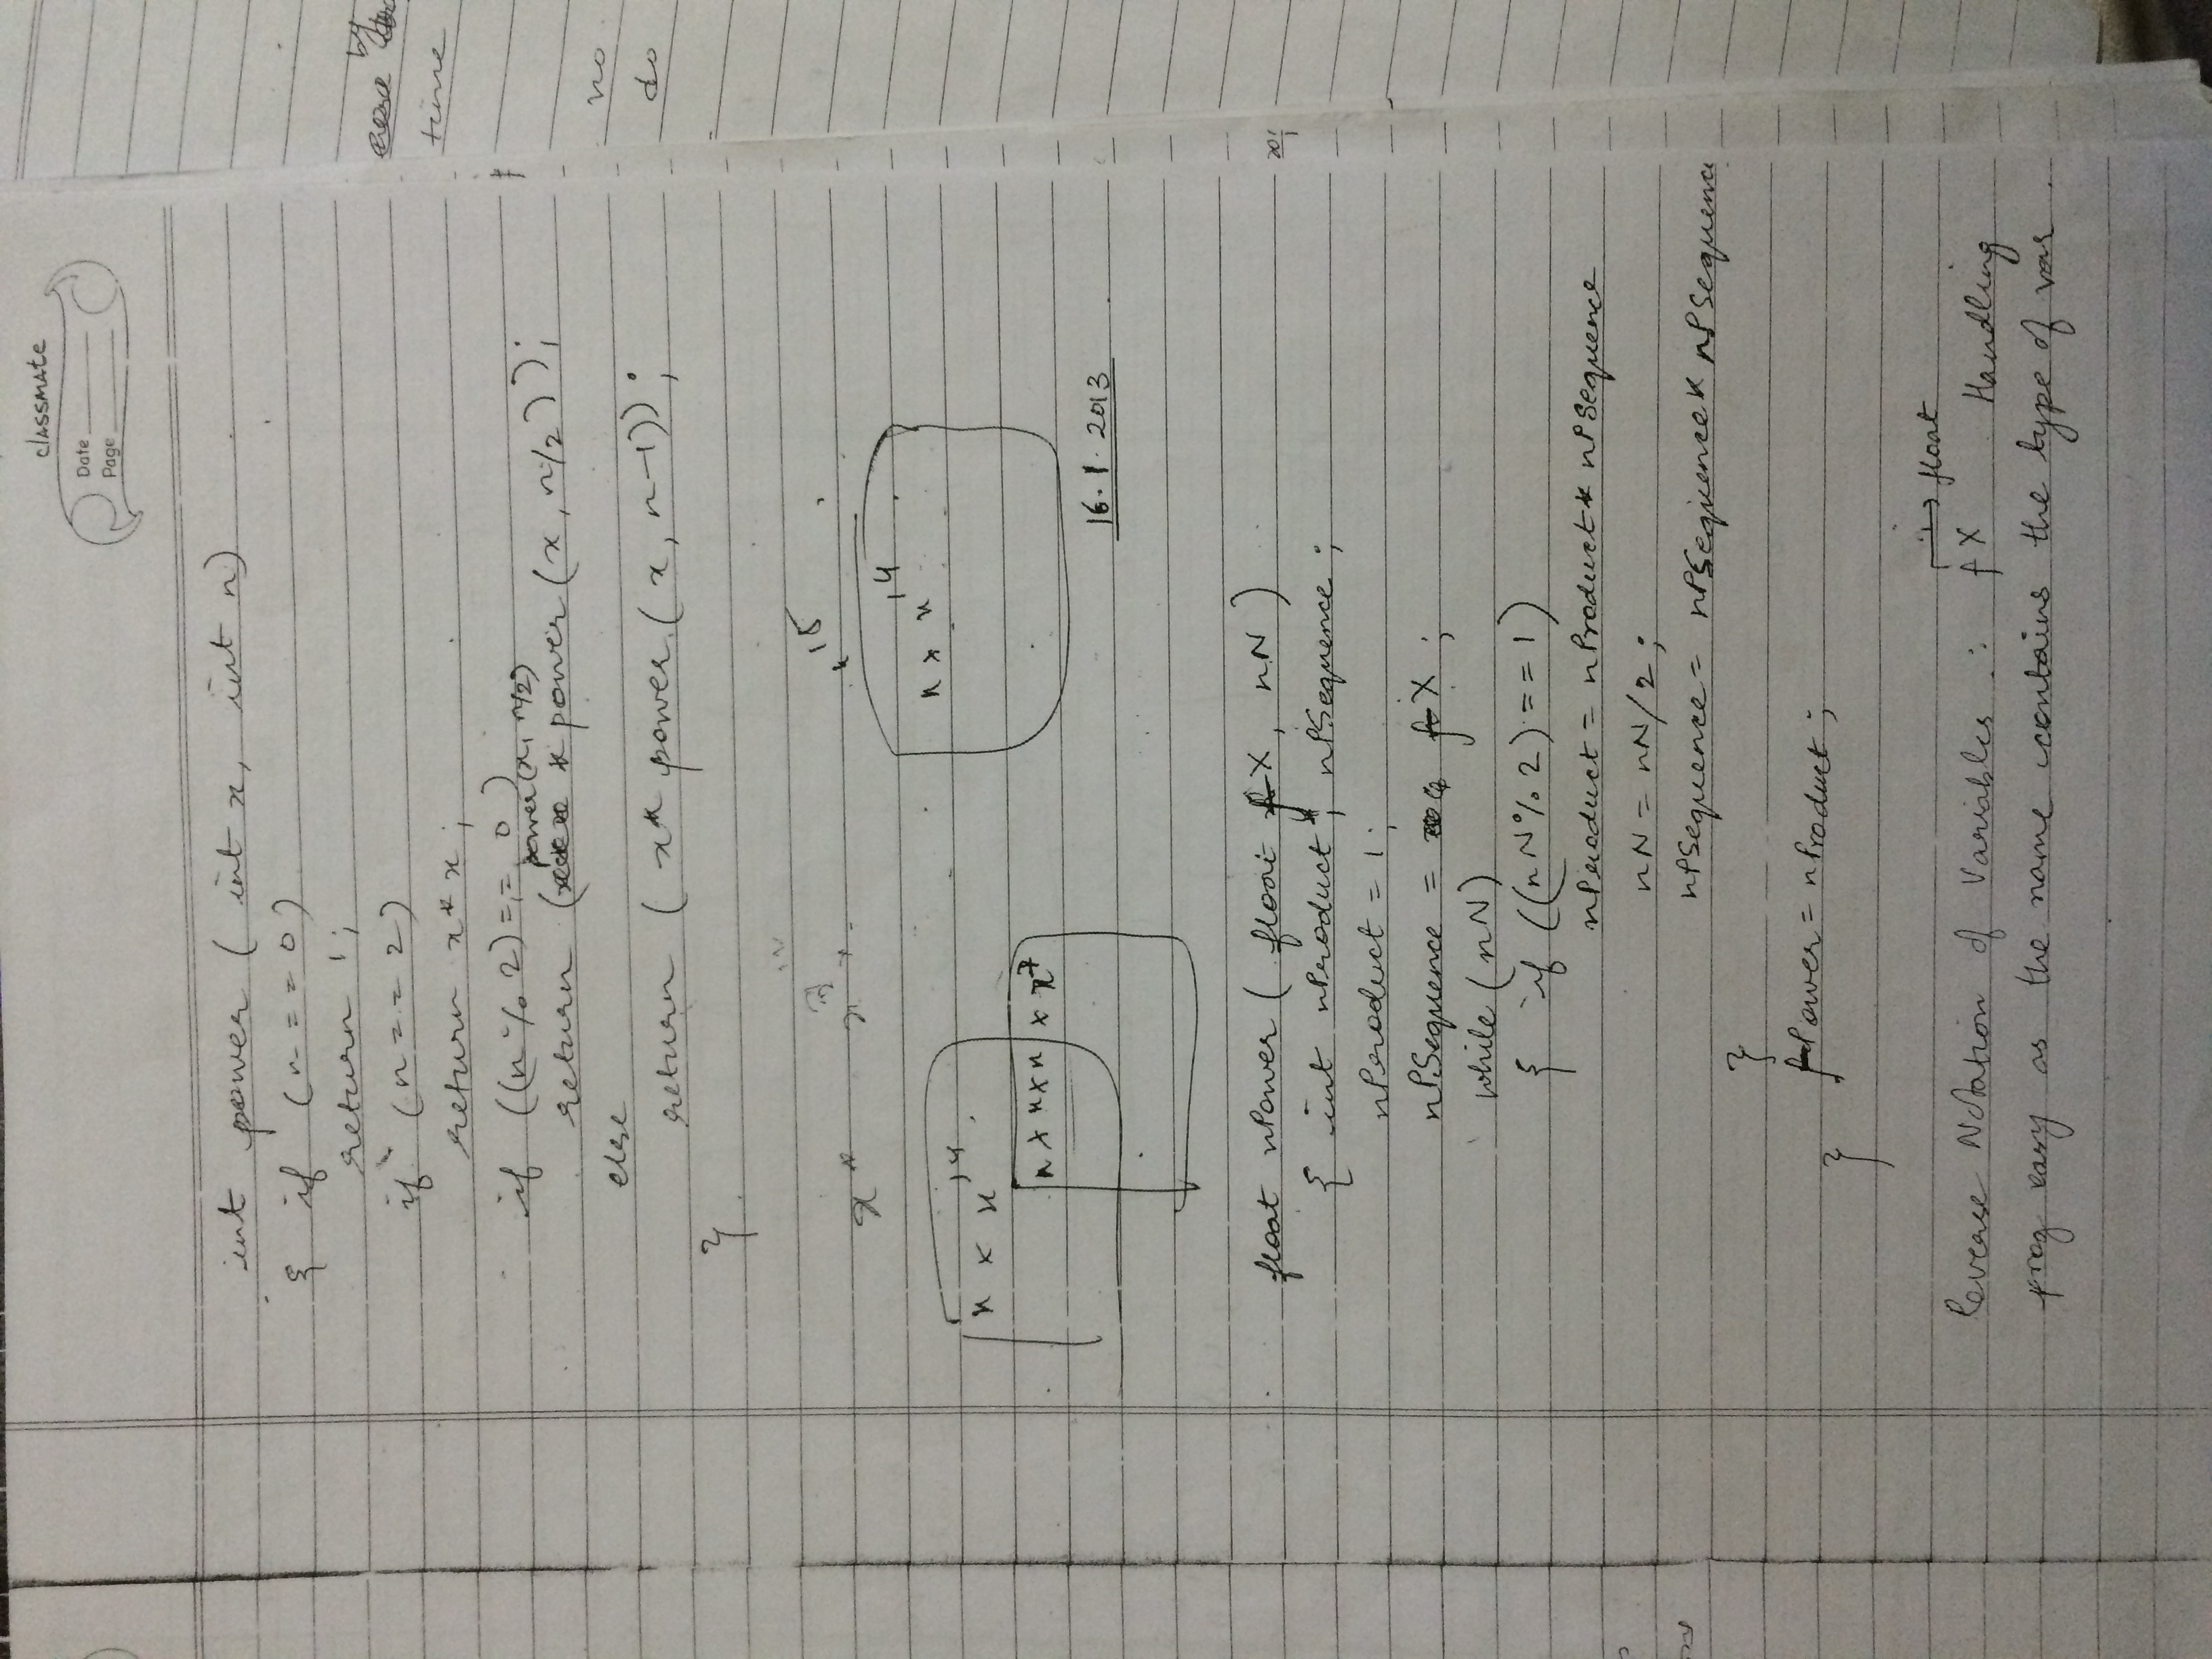 classmate
Date
Page
int power ( int x, int n)
{ if (n == 0)
return 1;
if (n == 2)
return x* x ;
if ((n % 2) == 0)
power(x, n/2)
return ( * power (x, n/2));
else
return ( x* power ( x, n-1));
}
x *
x15
x × x14
x × x14
x × x×x × x7
16.1.2013
float nPower ( float fX, nN )
{ int nProduct , nPSequence ;
nProduct = 1;
nPSequence = fX ;
while (nN)
{ if ((nN%2) == 1)
nProduct = nProduct * nPSequence
nN = nN/2 ;
nPSequence = nPSequence * nPSequence
}
fPower = nProduct ;
}
→ float
Reverse Notation of Variables : fX Handling
prog easy as the name contains the type of var .
by
time
no
do